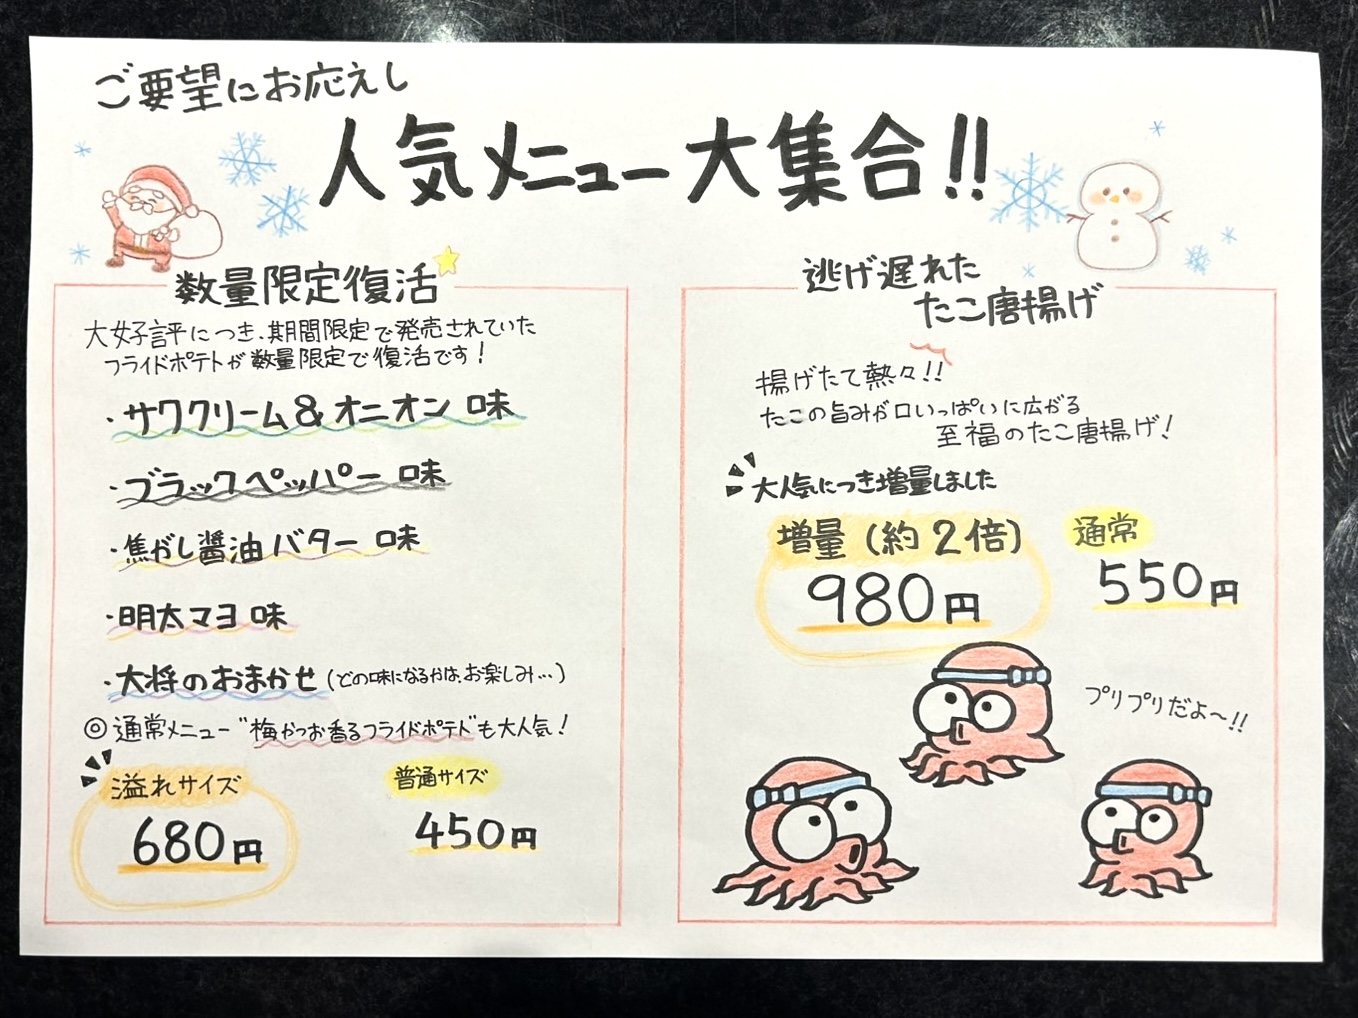 ご要望にお応えし
人気メニュー大集合!!
数量限定復活
大好評につき、期間限定で発売されていた
フライドポテトが数量限定で復活です!
・サワクリーム&オニオン 味
・ブラックペッパー 味
・焦がし醤油バター 味
・明太マヨ 味
・大将のおまかせ(どの味になるかは、お楽しみ…)
◎通常メニュー"梅かつお香るフライドポテト"も大人気!
溢れサイズ
680円
普通サイズ
450円
逃げ遅れた
たこ唐揚げ
揚げたて熱々!!
たこの旨みが口いっぱいに広がる
至福のたこ唐揚げ!
大人気につき増量しました
増量(約2倍)
980円
通常
550円
プリプリだよ〜!!